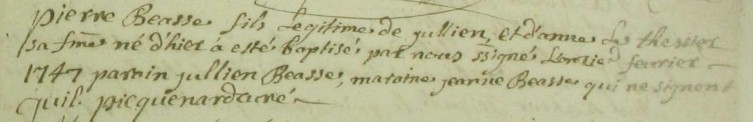 pierre Beasse fils Legitime de jullien, et d'anne Le thessier
sa fme né d'hier à esté baptisé par nous ssigné Lonzie fevrier
1747 parain jullien Beasse, maraine jeanne Beasse qui ne signent
guil. picquenard curé